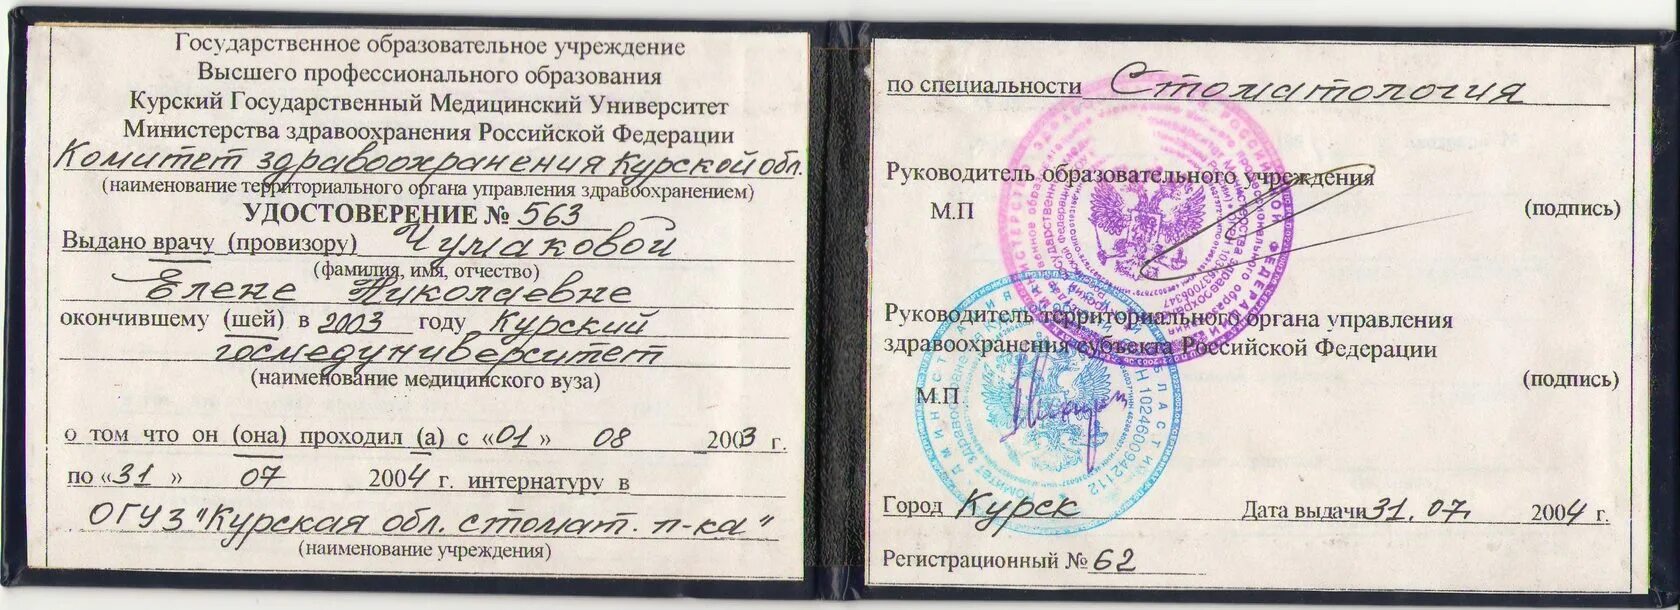 Государственное образовательное учреждение
Высшего профессионального образования
Курский Государственный Медицинский Университет
Министерства здравоохранения Российской Федерации
Комитет здравоохранения Курской обл.
(наименование территориального органа управления здравоохранением)
УДОСТОВЕРЕНИЕ № 563
Выдано врачу (провизору) Чумаковой
(фамилия, имя, отчество)
Елене Николаевне
окончившему (шей) в 2003 году Курский
госмедуниверситет
(наименование медицинского вуза)
о том что он (она) проходил (а) с «01» 08 2003 г.
по «31 » 07 2004 г. интернатуру в
ОГУЗ "Курская обл. стомат. п-ка"
(наименование учреждения)
по специальности Стоматология
Руководитель образовательного учреждения
М.П
(подпись)
Руководитель территориального органа управления
здравоохранения субъекта Российской Федерации
(подпись)
М.П
Город Курск Дата выдачи 31. 07. 2004 г.
Регистрационный № 62